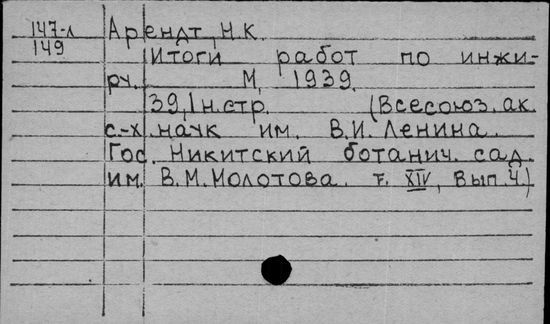 147-л Арендт, Н.К.
149 Итоги работ по инжи-
ру. М, 1939.
39,1 н.стр. (Всесоюз. ак.
с.-х. наук им. В.И. Ленина.
Гос. Никитский ботанич. сад.
им. В.М. Молотова. т. XIV, Вып. 4.)